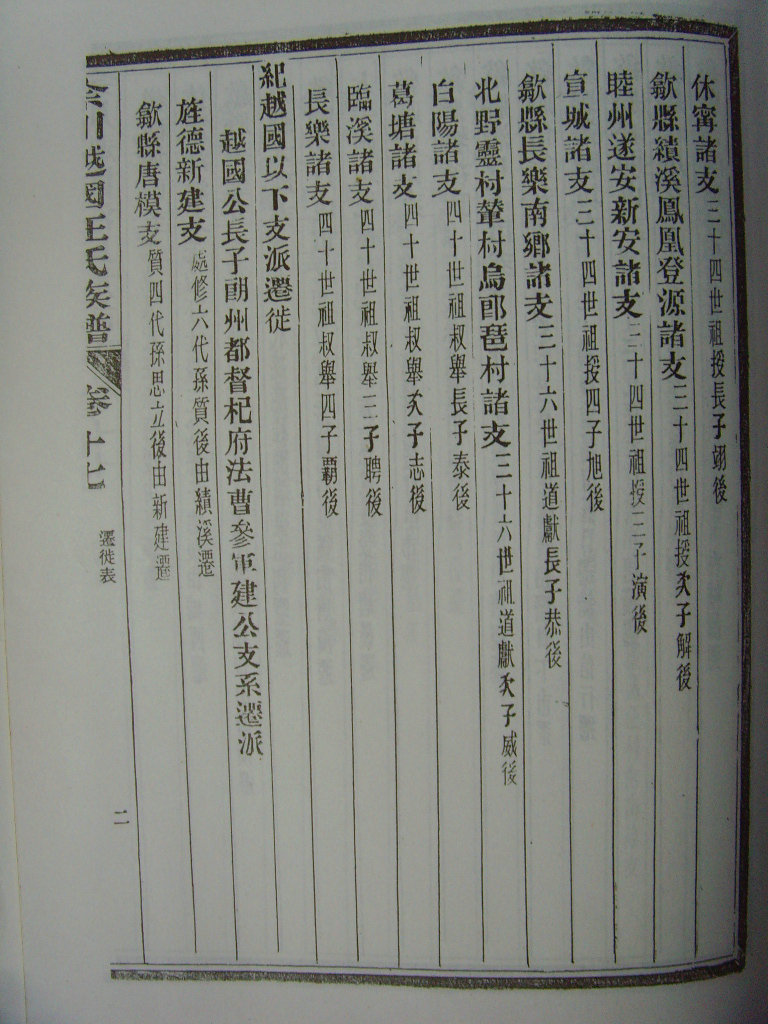 休寗諸支三十四世祖授長子翊後
歙縣績溪鳳凰登源諸支三十四世祖授次子解後
睦州遂安新安諸支三十四世祖授三子演後
宣城諸支三十四世祖授四子旭後
歙縣長樂南鄉諸支三十六世祖道獻長子恭後
北野靈村輋村烏郎琶村諸支三十六世祖道獻次子威後
白陽諸支四十世祖叔舉長子泰後
葛塘諸支四十世祖叔舉次子志後
臨溪諸支四十世祖叔舉三子聘後
長樂諸支四十世祖叔舉四子霸後
紀越國以下支派遷徙
越國公長子朗州都督杞府法曹參軍建公支系遷派
旌德新建支處修六代孫質後由績溪遷
歙縣唐模支質四代孫思立後由新建遷
余川越國汪氏族譜 卷十七 遷徙表 二